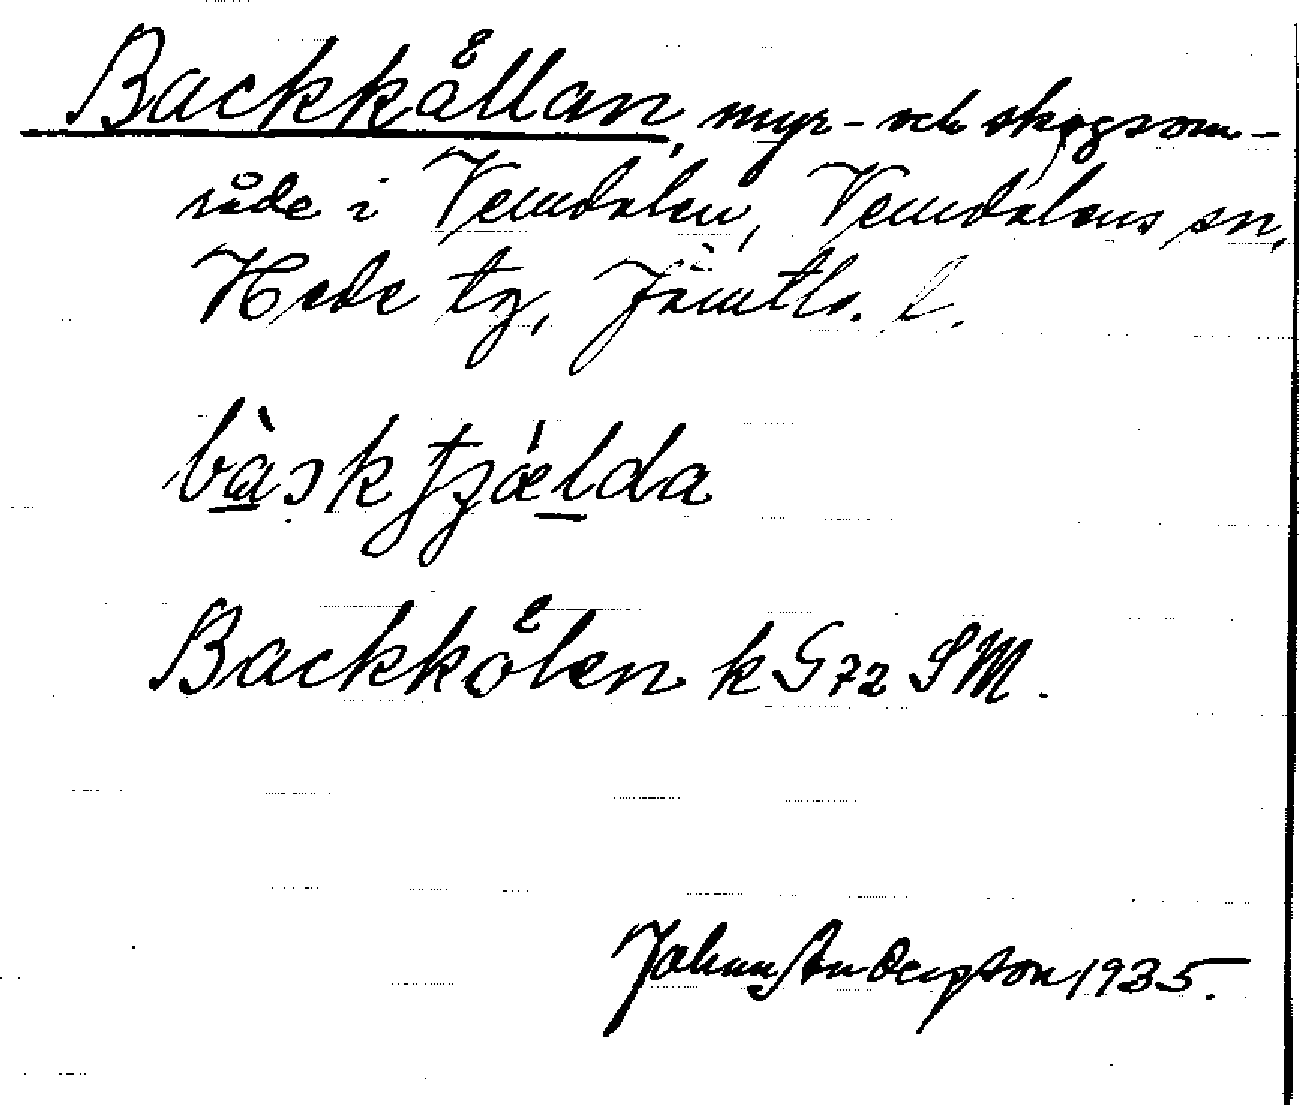 Backkållan, myr- och skogsom-
råde i Vemdalen, Vemdalens sn,
Hede tg, Jämtl. l.
bàskfzǽlda
Backkölen k G 72 SM.
Johan Anderson 1935.